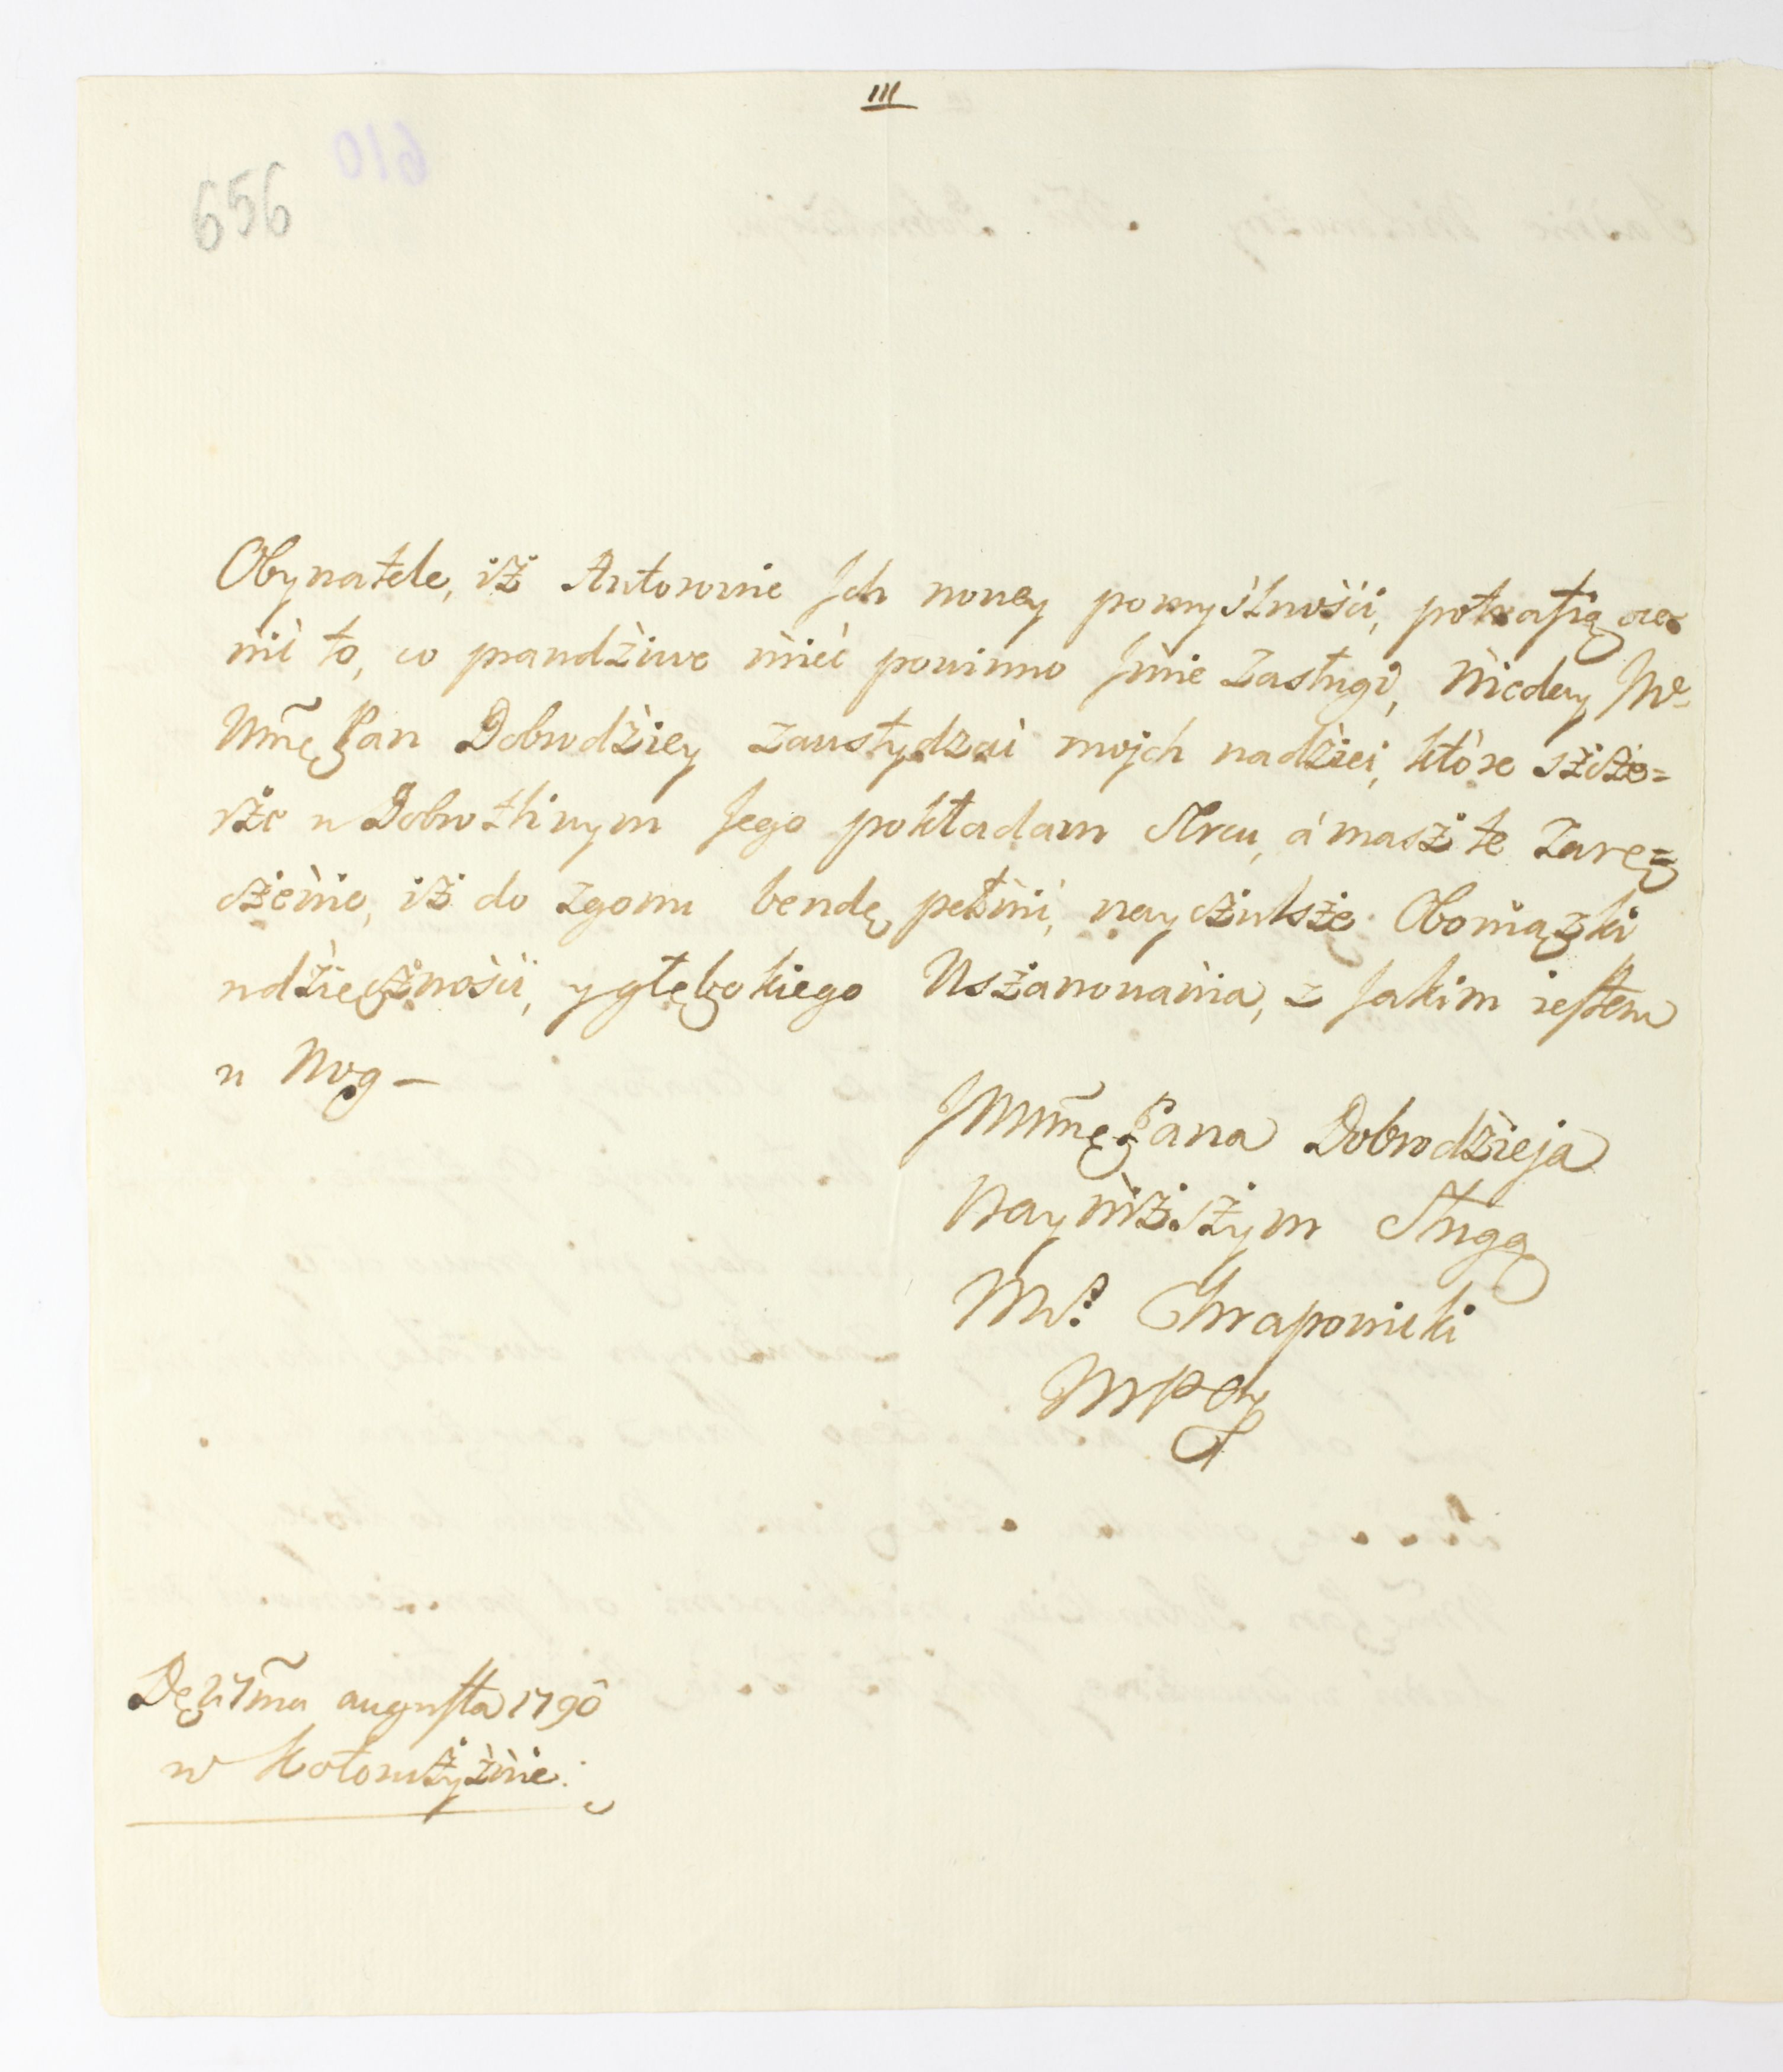 III
656
610
Obywatele, iż Autorowie Ich nowey pomyślności, potrafią oce-
nić to, co prawdźiwe mieć powinno Jmie zasługi, nieday JW
WMę Pan Dobrodźiey zawstydzać mojch nadźiei, które szcze=
rze w Dobrotliwym Jego pokładam Sercu, á masz te zarę=
czenie, iż do zgonu bendę pełnić, nayczulsze Obowiązki
wdźięczności, y głębokiego Uszanowania, z Jakim iestem
u Nog —
JWWMę Pana Dobrodźieja
Nayniższym Sługą
Chrapowicki
mp
De 27ma augusta 1790
w Kotowszyźnie